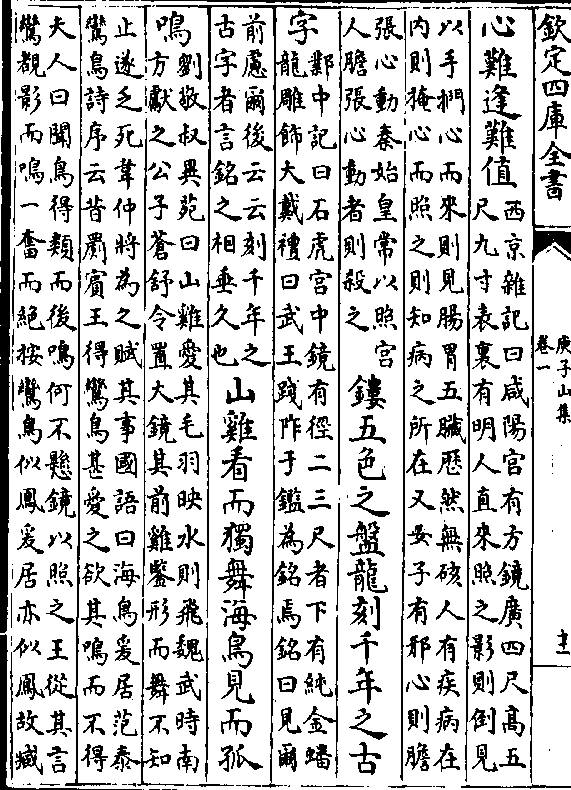 欽定四庫全書
庾子山集
卷一
十二
心難逢難值西京雜記曰咸陽宫有方鏡廣四尺髙五
尺九寸表裏有明人直來照之影則倒見
以手捫心而來則見腸胃五臟歴然無硋人有疾病在
内則掩心而照之則知病之所在又女子有邪心則膽
張心動秦始皇常以照宫
人膽張心動者則殺之鏤五色之盤龍刻千年之古
字鄴中記曰石虎宫中鏡有徑二三尺者下有純金蟠
龍雕飾大戴禮曰武王踐阼于鑑為銘焉銘曰見爾
前慮爾後云云刻千年之
古字者言銘之相垂久也山雞看而獨舞海鳥見而孤
鳴劉敬叔異苑曰山雞愛其毛羽映水則飛魏武時南
方獻之公子蒼舒令置大鏡其前雞鑒形而舞不知
止遂乏死韋仲將為之賦其事國語曰海鳥爰居范泰
鸞鳥詩序云昔罽賓王得鸞鳥甚愛之欲其鳴而不得
夫人曰聞鳥得類而後鳴何不懸鏡以照之王從其言
鸞覩影而鳴一奮而絶按鸞鳥似鳳爰居亦似鳳故臧